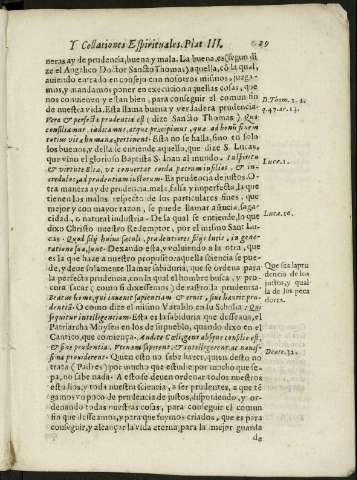 Y Collationes Espirituales. Plat III. 29
neras ay de prudencia, buena y mala. La buena, es (segun di
ze el Angelico Doctor Sancto Thomas) aquella, cō la qual,
auiendo entrado en consejo con nosotros mismos, juzga-
mos, y mandamos poner en execucion aquellas cosas, que
nos conuienen y estan bien, para conseguir el comun fin
de nuestra vida. Esta llama buena y verdadera prudencia.
Vera & perfecta prudentia est (dize Sancto Thomas) Qua
consiliamur, iudicamus, atque præcipimus, quæ ad bonū finem
totius vitæ humanæ pertinent. Esta no se halla, sino en solo
los buenos, y della se entiende aquello, que dize S. Lucas,
que vino el glorioso Baptista S. Ioan al mundo. In spiritu
& virtute Eliæ, vt conuertat corda patrum in filios, & in-
credulos, ad prudentiam iustorum. Es prudencia de justos. O-
tra manera ay de prudencia mala, falsa y imperfecta, la que
tienen los malos respecto de sus particulares fines, que
mejor y con mayor razon, se puede llamar astucia, saga-
cidad, o natural industria. De la qual se entiende, lo que
dixo Christo nuestro Redemptor, por el mismo San Lu-
cas. Quod filij huius sæculi, prudentiores filijs lucis, in gene-
ratione sua, sunt. Dexando esta, y voluiendo a la otra, que
es la que haze a nuestro proposito: aquella sciencia se pue-
de, y deue solamente llamar sabiduria, que se ordena para
la perfecta prudencia, con la qual el hombre busca, y pro-
cura (sacar, como si dixessemos) de rastro la prudencia.
Beatus homo, qui inuenit sapientiam & eruit, siue haurit pru-
dentiā. O como dize el mismo Vatablo en su Scholia: Qui
sequitur intelligentiam. Esta es la sabiduria que desseaua, el
Patriarcha Moysen en los de su pueblo, quando dixo en el
Cantico, que comiença. Audite Cæli: gens absque consilio est,
& sine prudentia. Vtinam saperent, & intelligerent, ac nouis-
sima prouiderent. Quien esto no sabe hazer, quien desto no
trata (Padres) por mucho que estudie por mucho que se-
pa, no sabe nada. A esto se deuen ordenar todos nuestros
estudios, y toda nuestra sciencia, a ser prudentes, a que tē
gamos vn poco de prudencia de justos, disponiendo, y or-
denando todas nuestras cosas, para conseguir el comun
fin que desseamos, y para que fuymos criados, que es, para
conseguir, y alcançar la vida eterna, para la mejor guarda
de
D. Thom. 2. 2.
q. 47. ar. 13.
Luce. 1.
Luce. 16.
Que sea la pru
dencia de los
justos, y qual
la de los peca
dores.
Deute. 32.